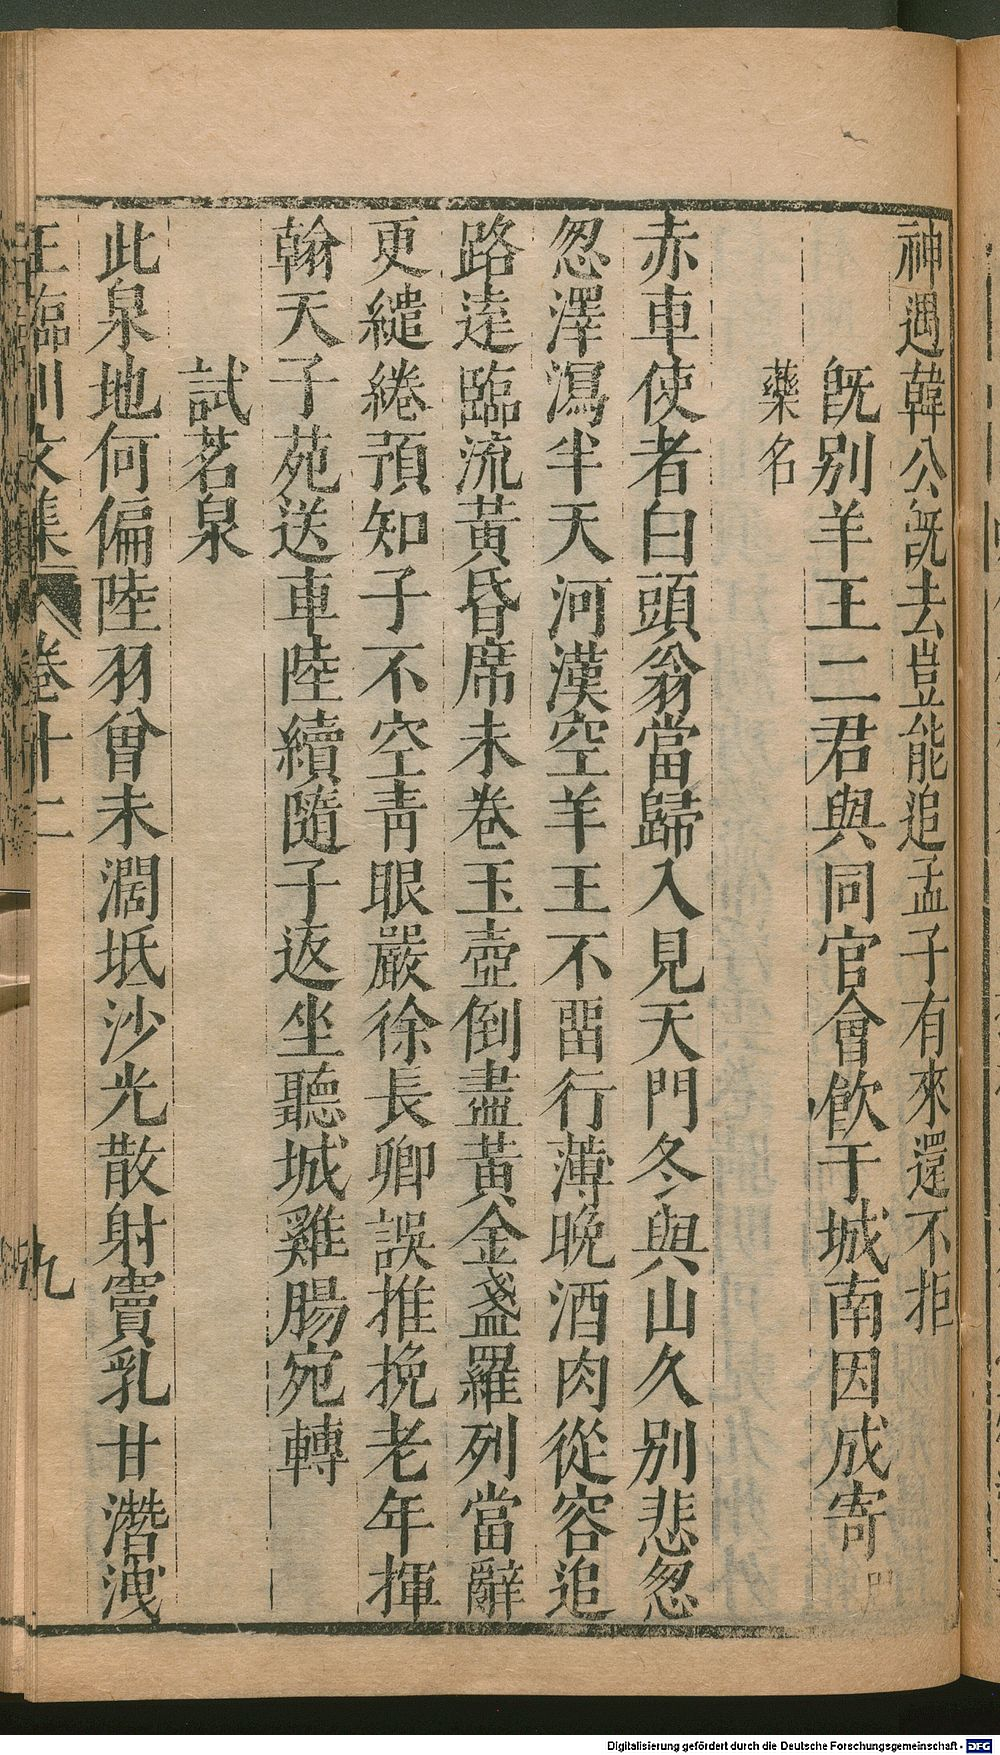 神遇韓公旣去豈能追孟子有來還不拒
旣別羊王二君與同官會飮于城南因成寄
藥名
赤車使者白頭翁當歸入見天門冬與山久別悲怱
怱澤瀉半天河漢空羊王不畱行薄晚酒肉從容追
路遠臨流黃昏席未卷玉壺倒盡黃金盞羅列當辭
更繾綣預知子不空靑眼嚴徐長卿誤推挽老年揮
翰天子苑送車陸續隨子返坐聽城雞腸宛轉
試茗泉
此泉地何偏陸羽曾未濶坻沙光散射竇乳甘潛洩
王臨川文集 卷十二 九
Digitalisierung gefördert durch die Deutsche Forschungsgemeinschaft - DFG